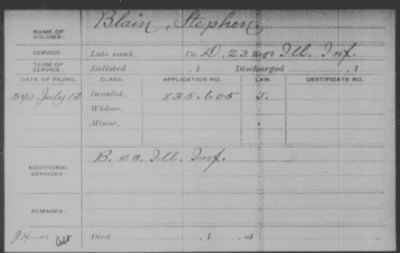 Blain, Stephen.
NAME OF SOLDIER:
SERVICE: Late rank, Co. D, 23 Reg't Ill. Inf.
TERM OF SERVICE: Enlisted , 1 Discharged , 1
DATE OF FILING. CLASS. APPLICATION NO. LAW. CERTIFICATE NO.
1890 July 12 Invalid, 835.605
Widow,
Minor,
ADDITIONAL SERVICES: Ill. Inf.
REMARKS:
Died , 1 , at